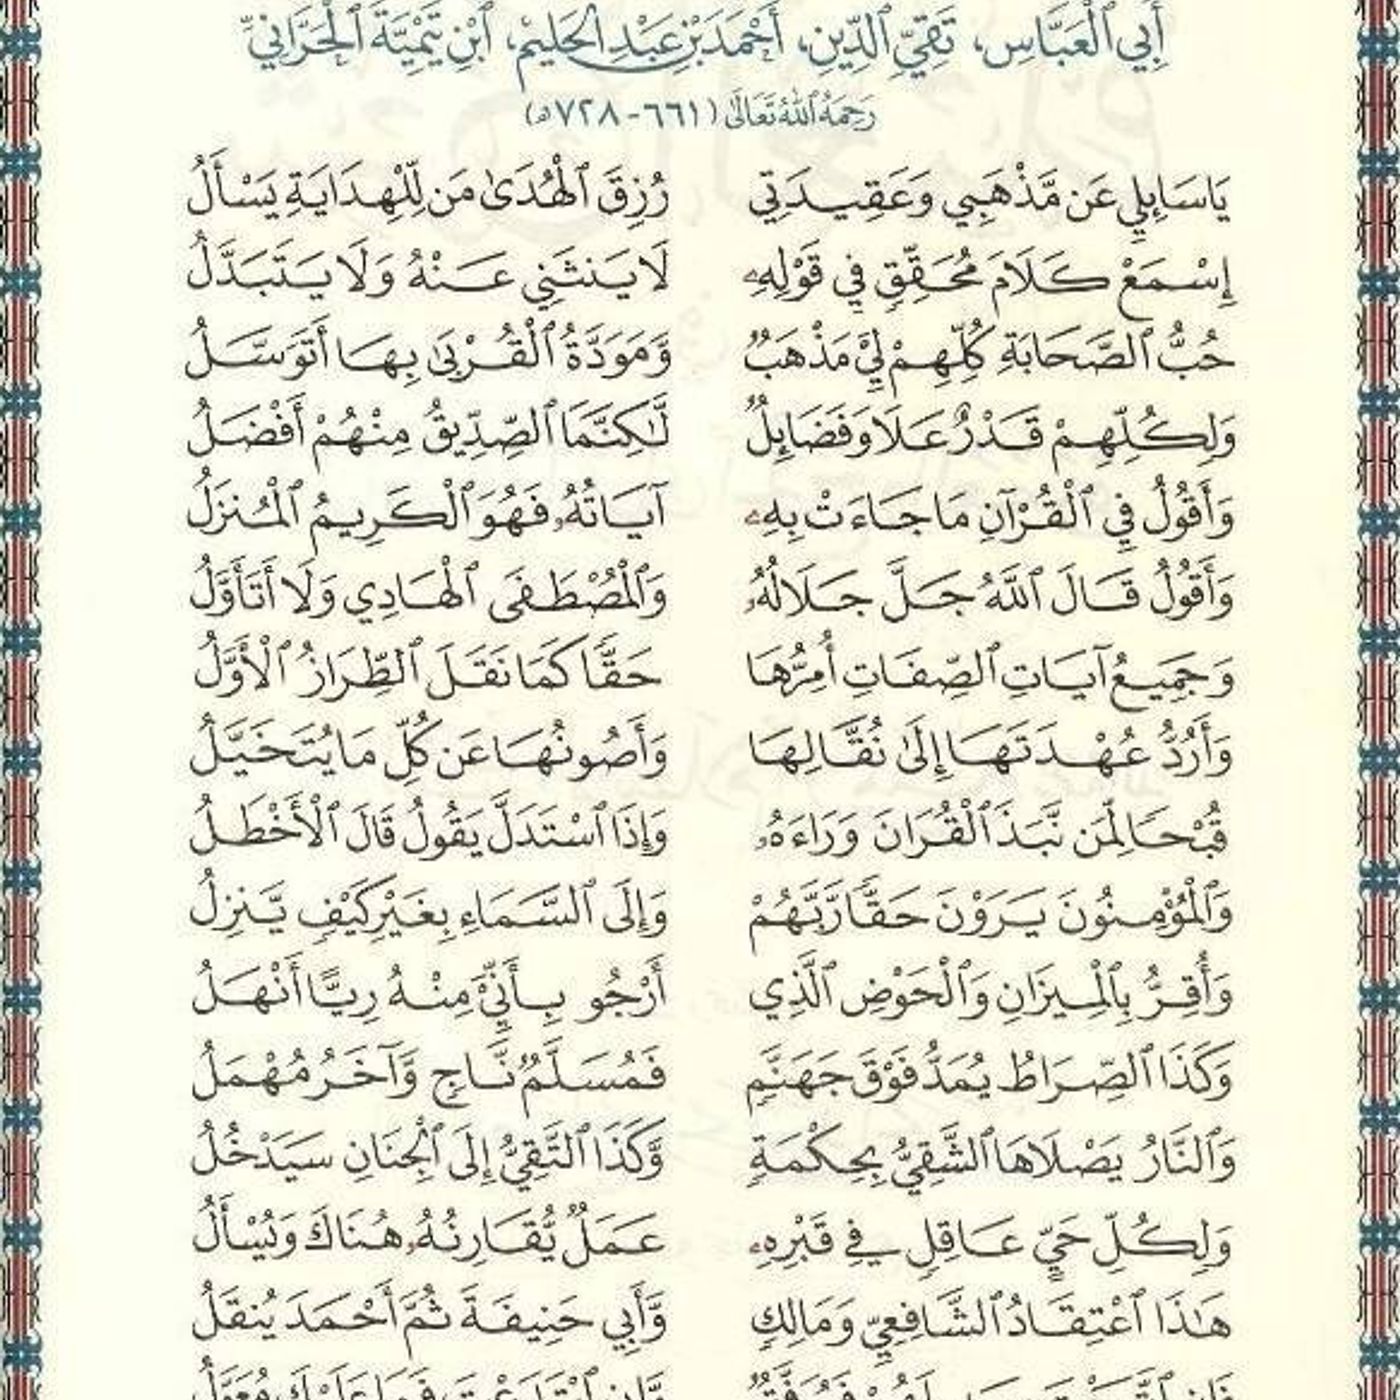 أَبِي ٱلْعَبَّاسِ، تَقِيِّ ٱلدِّينِ، أَحْمَدَ بْنِ عَبْدِ ٱلْحَلِيمِ، ٱبْنِ تَيْمِيَّةَ ٱلْحَرَّانِيِّ
رَحِمَهُ ٱللَّهُ تَعَالَىٰ (٦٦١-٧٢٨ه)
يَا سَايِلِي عَن مَّذْهَبِي وَعَقِيدَتِي رُزِقَ ٱلْهُدَىٰ مَن لِّلْهِدَايَةِ يَسْأَلُ
إِسْمَعْ كَلَامَ مُحَقِّقٍ فِي قَوْلِهِۦ لَا يَنثَنِي عَنْهُ وَلَا يَتَبَدَّلُ
حُبُّ ٱلصَّحَابَةِ كُلِّهِمْ لِي مَذْهَبٌ وَمَوَدَّةُ ٱلْقُرْبَىٰ بِهَا أَتَوَسَّلُ
وَلِكُلِّهِمْ قَدْرٌ عَلَا وَفَضَايِلٌ لَّٰكِنَّمَا ٱلصِّدِّيقُ مِنْهُمْ أَفْضَلُ
وَأَقُولُ فِي ٱلْقُرْآنِ مَا جَاءَتْ بِهِۦ آيَاتُهُۥ فَهُوَ ٱلْكَرِيمُ ٱلْمُنزَلُ
وَأَقُولُ قَالَ ٱللَّهُ جَلَّ جَلَالُهُۥ وَٱلْمُصْطَفَى ٱلْهَادِي وَلَا أَتَأَوَّلُ
وَجَمِيعُ آيَاتِ ٱلصِّفَاتِ أُمِرُّهَا حَقًّا كَمَا نَقَلَ ٱلطِّرَازُ ٱلْأَوَّلُ
وَأَرُدُّ عُهْدَتَهَا إِلَىٰ نُقَّالِهَا وَأَصُونُهَا عَن كُلِّ مَا يُتَخَيَّلُ
قُبْحًا لِمَن نَّبَذَ ٱلْقُرَانَ وَرَاءَهُۥ وَإِذَا ٱسْتَدَلَّ يَقُولُ قَالَ ٱلْأَخْطَلُ
وَٱلْمُؤْمِنُونَ يَرَوْنَ حَقًّا رَّبَّهُمْ وَإِلَى ٱلسَّمَاءِ بِغَيْرِ كَيْفٍ يَنزِلُ
وَأُقِرُّ بِٱلْمِيزَانِ وَٱلْحَوْضِ ٱلَّذِي أَرْجُو بِأَنِّي مِنْهُ رِيًّا أَنْهَلُ
وَكَذَا ٱلصِّرَاطُ يُمَدُّ فَوْقَ جَهَنَّمٍ فَمُسَلَّمٌ نَّاجٍ وَّآخَرُ مُهْمَلُ
وَٱلنَّارُ يَصْلَاهَا ٱلشَّقِيُّ بِحِكْمَةٍ وَّكَذَا ٱلتَّقِيُّ إِلَى ٱلْجِنَانِ سَيَدْخُلُ
وَلِكُلِّ حَيٍّ عَاقِلٍ فِي قَبْرِهِۦ عَمَلٌ يُّقَارِنُهُۥ هُنَاكَ وَيُسْأَلُ
هَٰذَا ٱعْتِقَادُ ٱلشَّافِعِيِّ وَمَالِكٍ وَّأَبِي حَنِيفَةَ ثُمَّ أَحْمَدَ يُنقَلُ